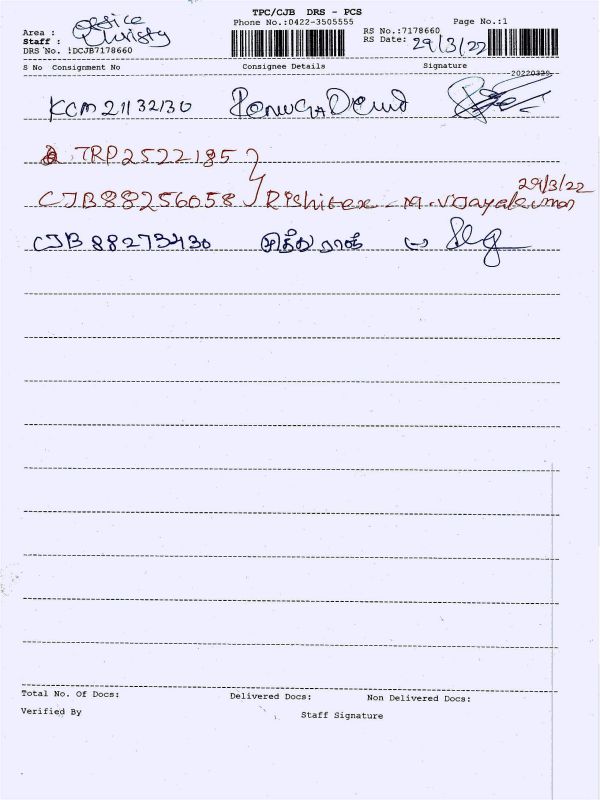 TPC/CJB DRS - PCS
Phone No.:0422-3505555 Page No.:1
Area : Office RS No.:7178660
Staff : Christy RS Date: 29/3/22
DRS No. :DCJB7178660
S No Consignment No Consignee Details Signature
20220329
KCM21132130
TRP2522185
29/3/22
CJB88256058 Rishitex - M. Vijayakumar
CJB88273430
Total No. Of Docs: Delivered Docs: Non Delivered Docs:
Verified By Staff Signature